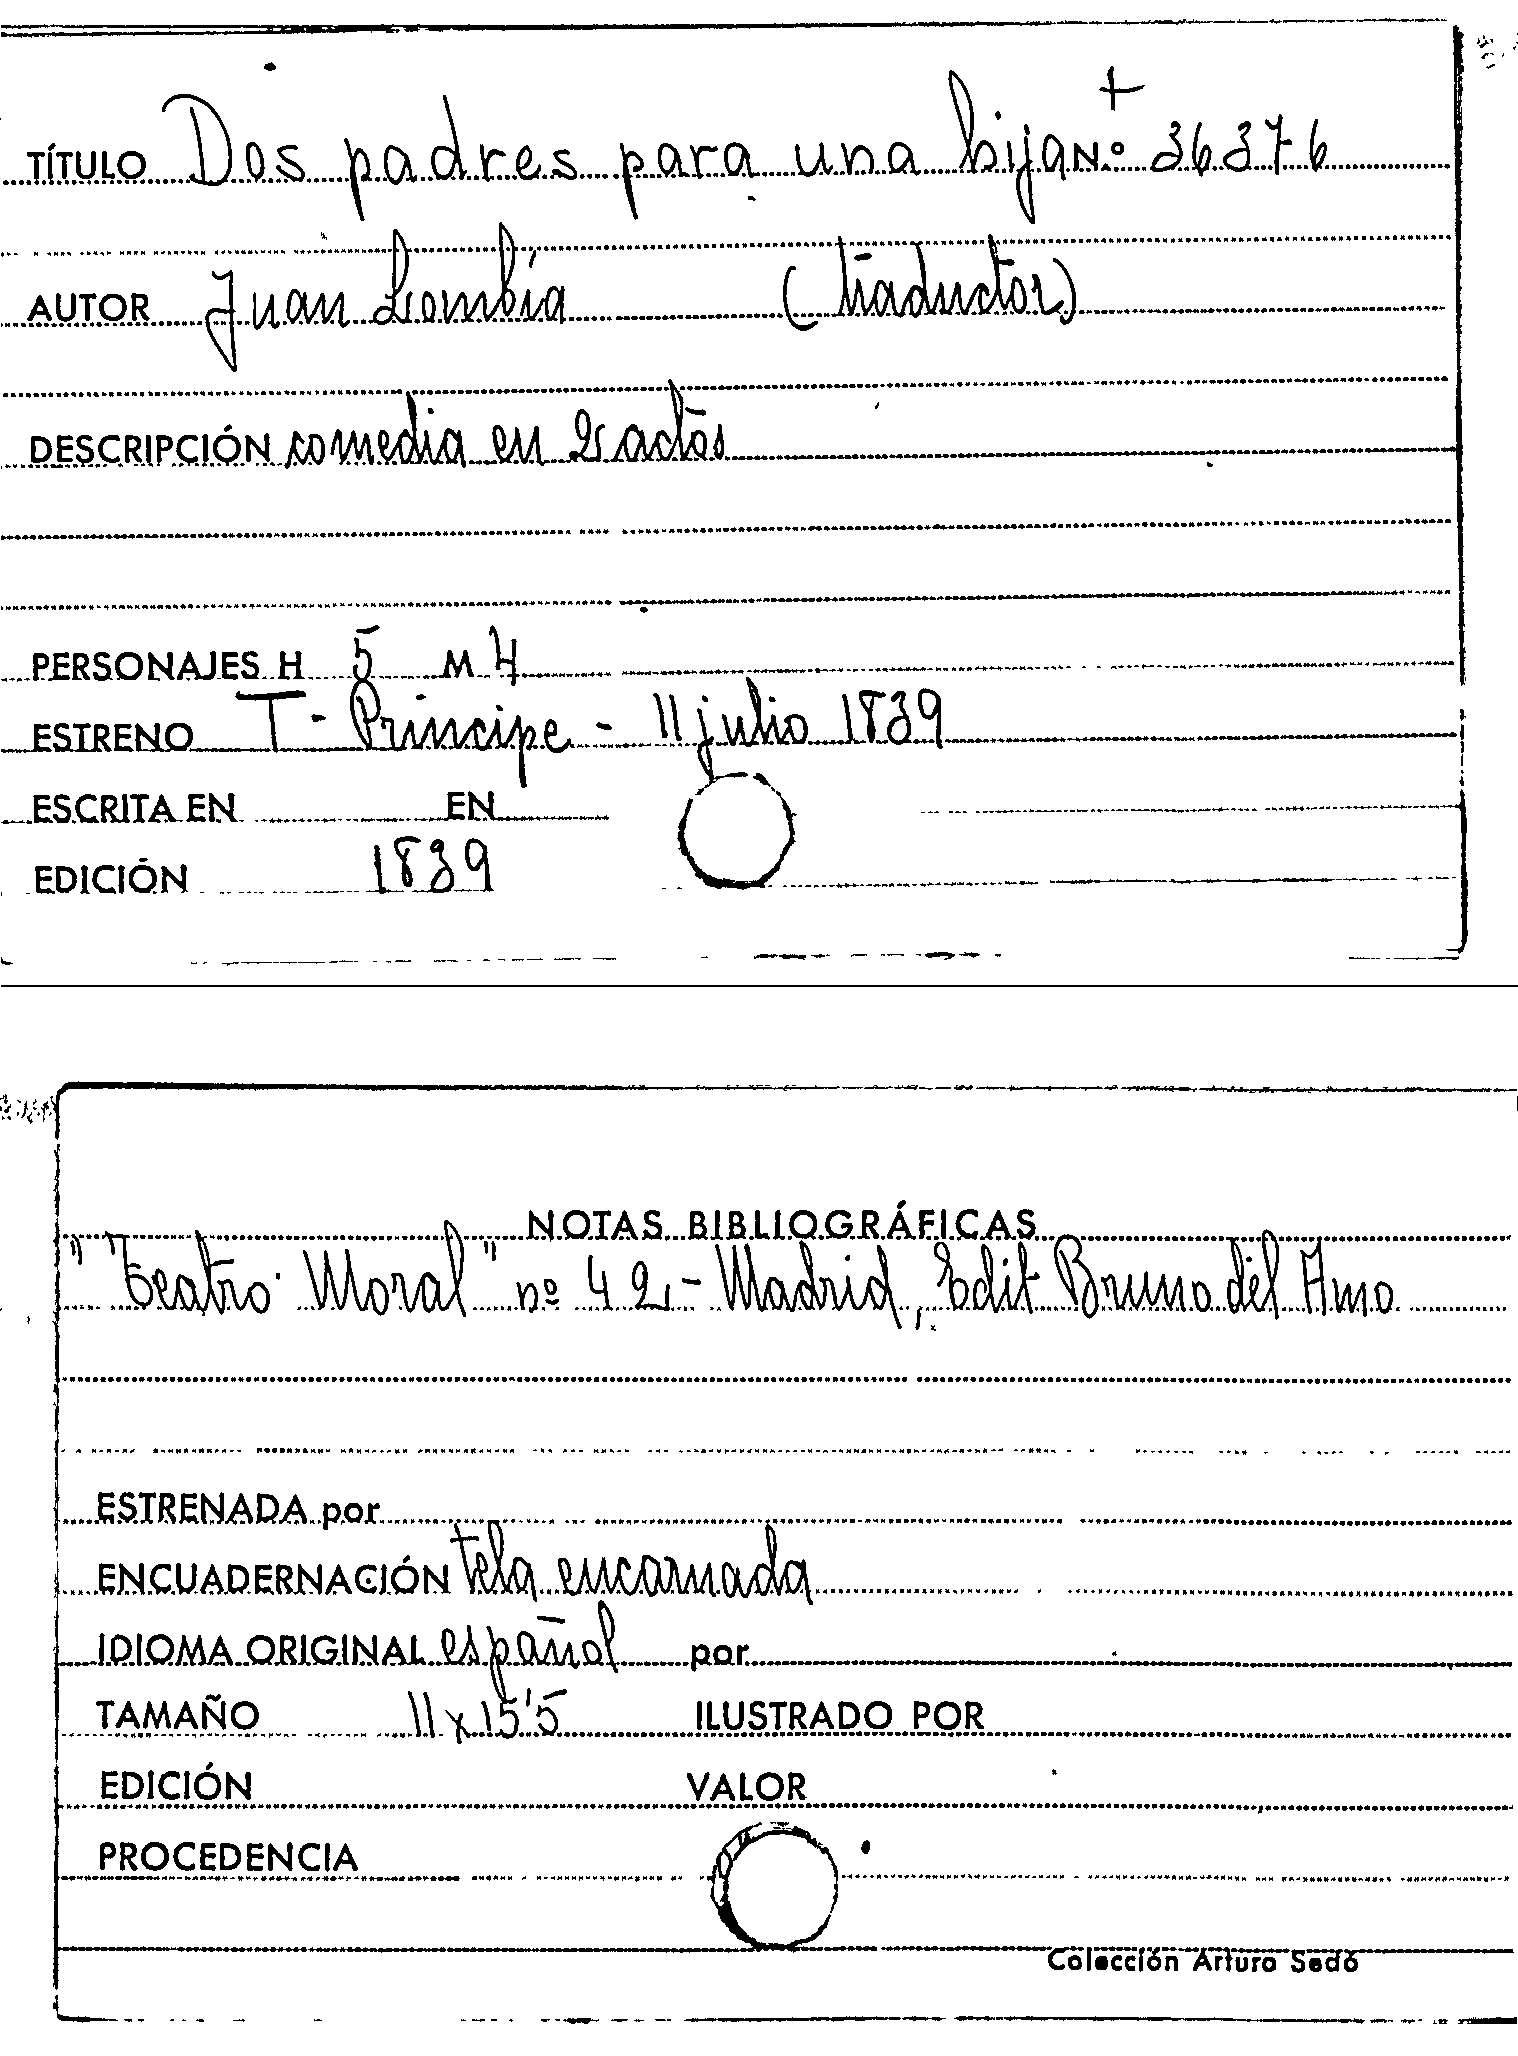 +
TÍTULO Dos padres para una hija N.º 36376
AUTOR Juan Lombía (traductor)
DESCRIPCIÓN comedia en 2 actos
PERSONAJES H 5 M 4
ESTRENO T - Príncipe - 11 julio 1839
ESCRITA EN EN
EDICIÓN 1839
NOTAS BIBLIOGRÁFICAS
"Teatro Moral" nº 42 - Madrid, Edit Bruno del Amo
ESTRENADA por
ENCUADERNACIÓN tela encarnada
IDIOMA ORIGINAL español por
TAMAÑO 11 x 15'5 ILUSTRADO POR
EDICIÓN VALOR
PROCEDENCIA
Colección Arturo Sedó